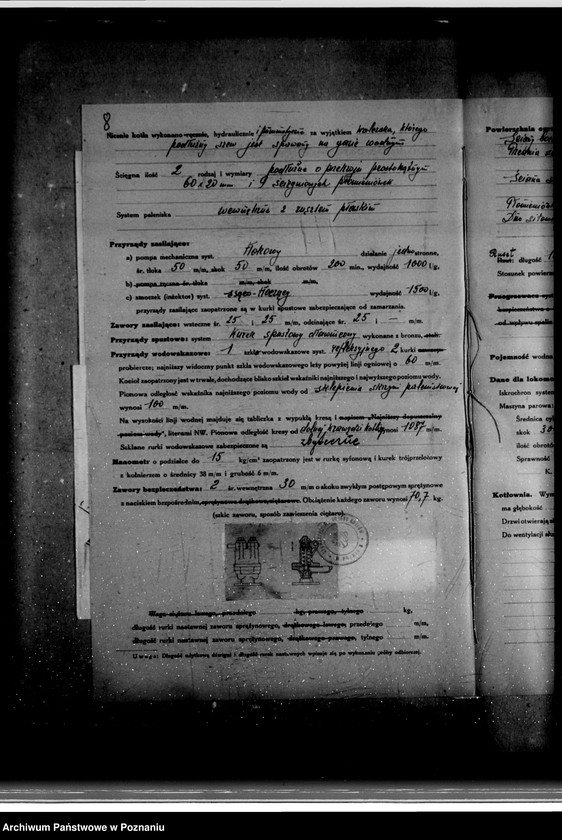 8
Nitanie kotła wykonano ręcznie, hydraulicznie i pneumatycznie za wyjątkiem walczaka, którego
podłużny szew jest spawany na gazie wodnym
Ścięgna ilość 2 rodzaj i wymiary podłużne o przekroju prostokątnym
60 x 20 mm i 9 ściągowych płomieniówek
System paleniska wewnętrzne z rusztem płaskim
Przyrządy zasilające:
a) pompa mechaniczna syst. tłokowy działanie jednostronne,
śr. tłoka 50 m/m, skok 50 m/m, ilość obrotów 200 min., wydajność 1000 l/g.
b) pompa ręczna śr. tłoka m/m, skok m/m,
c) smoczek (inżektor) syst. ssąco-tłoczący wydajność 1500 l/g.
przyrządy zasilające zaopatrzone są w kurki spustowe zabezpieczające od zamarzania.
Zawory zasilające: wsteczne śr. 25 i 25 m/m, odcinające śr. 25 i — m/m.
Przyrządy spustowe: system kurek spustowy dławnicowy wykonane z bronzu,
Przyrządy wodowskazowe: 1 szkło wodowskazowe syst. refleksyjnego 2 kurki
probiercze; najniższy widoczny punkt szkła wodowskazowego leży powyżej linji ogniowej o 60 m/m.
Kozioł zaopatrzony jest w trwałe, dochodzące blisko szkieł wskaźniki najniższego i najwyższego poziomu wody.
Pionowa odległość wskaźnika najniższego poziomu wody od sklepienia skrzyni paleniskowej
wynosi 100 m/m.
Na wysokości linji wodnej znajduje się tabliczka z wypukłą kresą i napisem „Najniższy dopuszczalny
poziom wody", literami NW. Pionowa odległość kresy od dolnej krawędzi kotła wynosi 1087 m/m.
Szklane rurki wodowskazowe zabezpieczone są
zbytecznie
Manometr o podziałce do 15 kg/cm² zaopatrzony jest w rurkę syfonową i kurek trójprzelotowy
z kołnierzem o średnicy 38 m/m i grubość 6 m/m.
Zawory bezpieczeństwa: 2 śr. wewnętrzna 30 m/m o skoku zwykłym postępowym sprężynowe
z naciskiem bezpośrednim, sprężynowe dźwigniowe ciężarowe. Obciążenie każdego zaworu wynosi 70,7 kg.
(szkic zaworu, sposób zawieszenia ciężaru).
Waga ciężaru lewego, przedniego kg, prawego, tylnego kg,
długość rurki nastawnej zaworu sprężynowego, drążkowego lewego, przedniego m/m.
długość rurki nastawnej zaworu sprężynowego, drążkowego prawego, tylnego m/m.
Uwaga: Długość użytkową dźwigni i długość rurek nastawnych wpisuje się po wykonaniu próby odbiorczej.
Powierzchnia ogr
Ruszt: długość
Stosunek powierz
Przegrzewacz syst
bezpieczeństwa
od wpływu spalin
Pojemność wodna
Dane dla lokomo
Iskrochron system
Maszyna parowa
Średnica cy
skok 30
ilość obrotów
Sprawność
K.
Kotłownia. Wym
ma głębokość
Drzwi otwierają
Do wentylacji
Archiwum Państwowe w Poznaniu